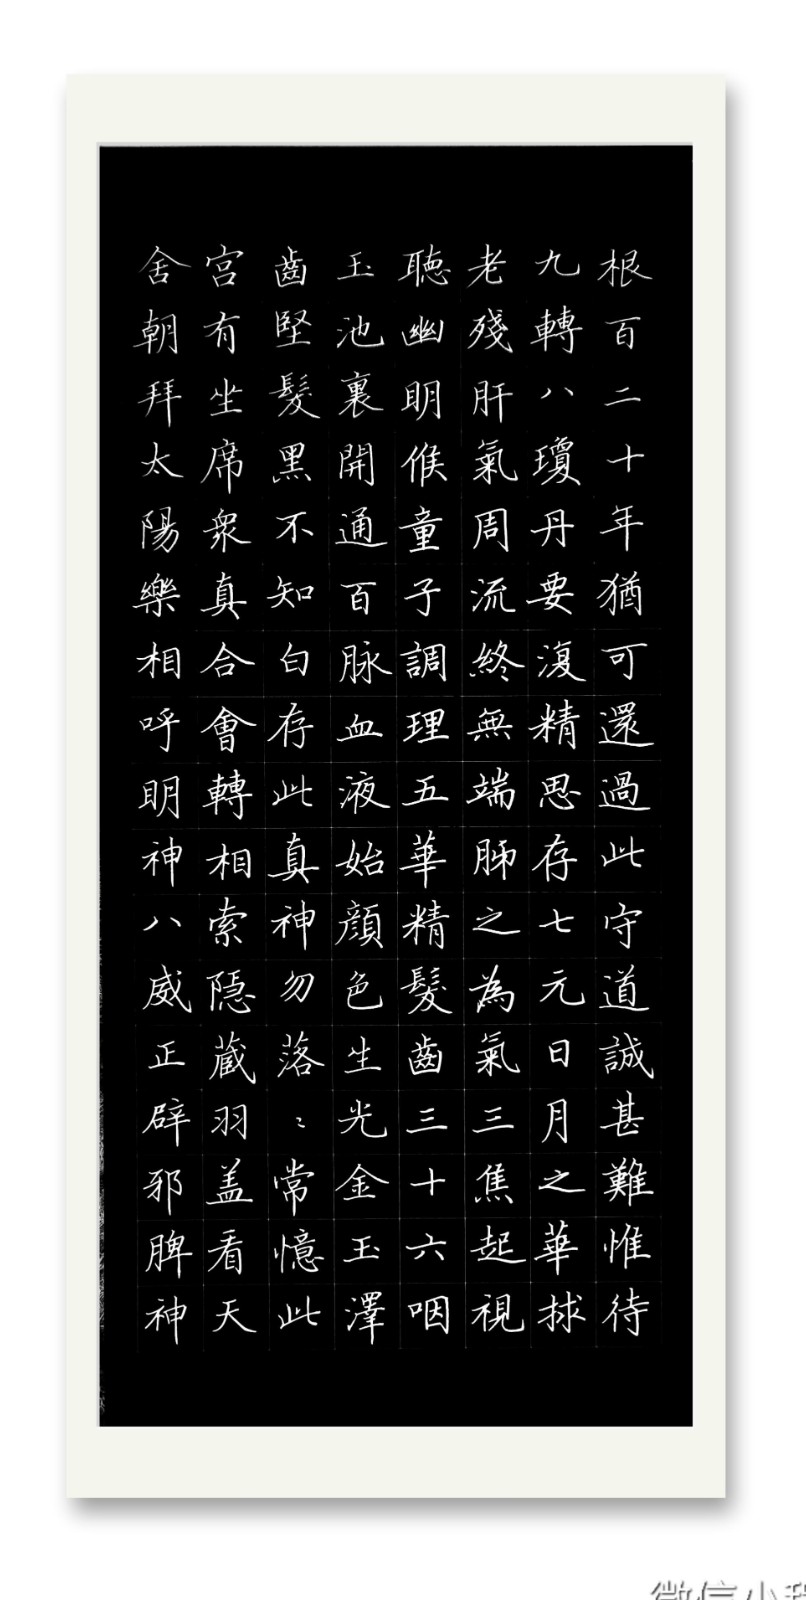 根百二十年猶可還過此守道誠甚難惟待
九轉八瓊丹要復精思存七元日月之華捄
老殘肝氣周流終無端肺之為氣三焦起視
聽幽明候童子調理五華精髮齒三十六咽
玉池裏開通百脉血液始顔色生光金玉澤
齒堅髮黑不知白存此真神勿落〻常憶此
宫有坐席衆真合會轉相索隱藏羽盖看天
舍朝拜太陽樂相呼明神八威正辟邪脾神
微信小程